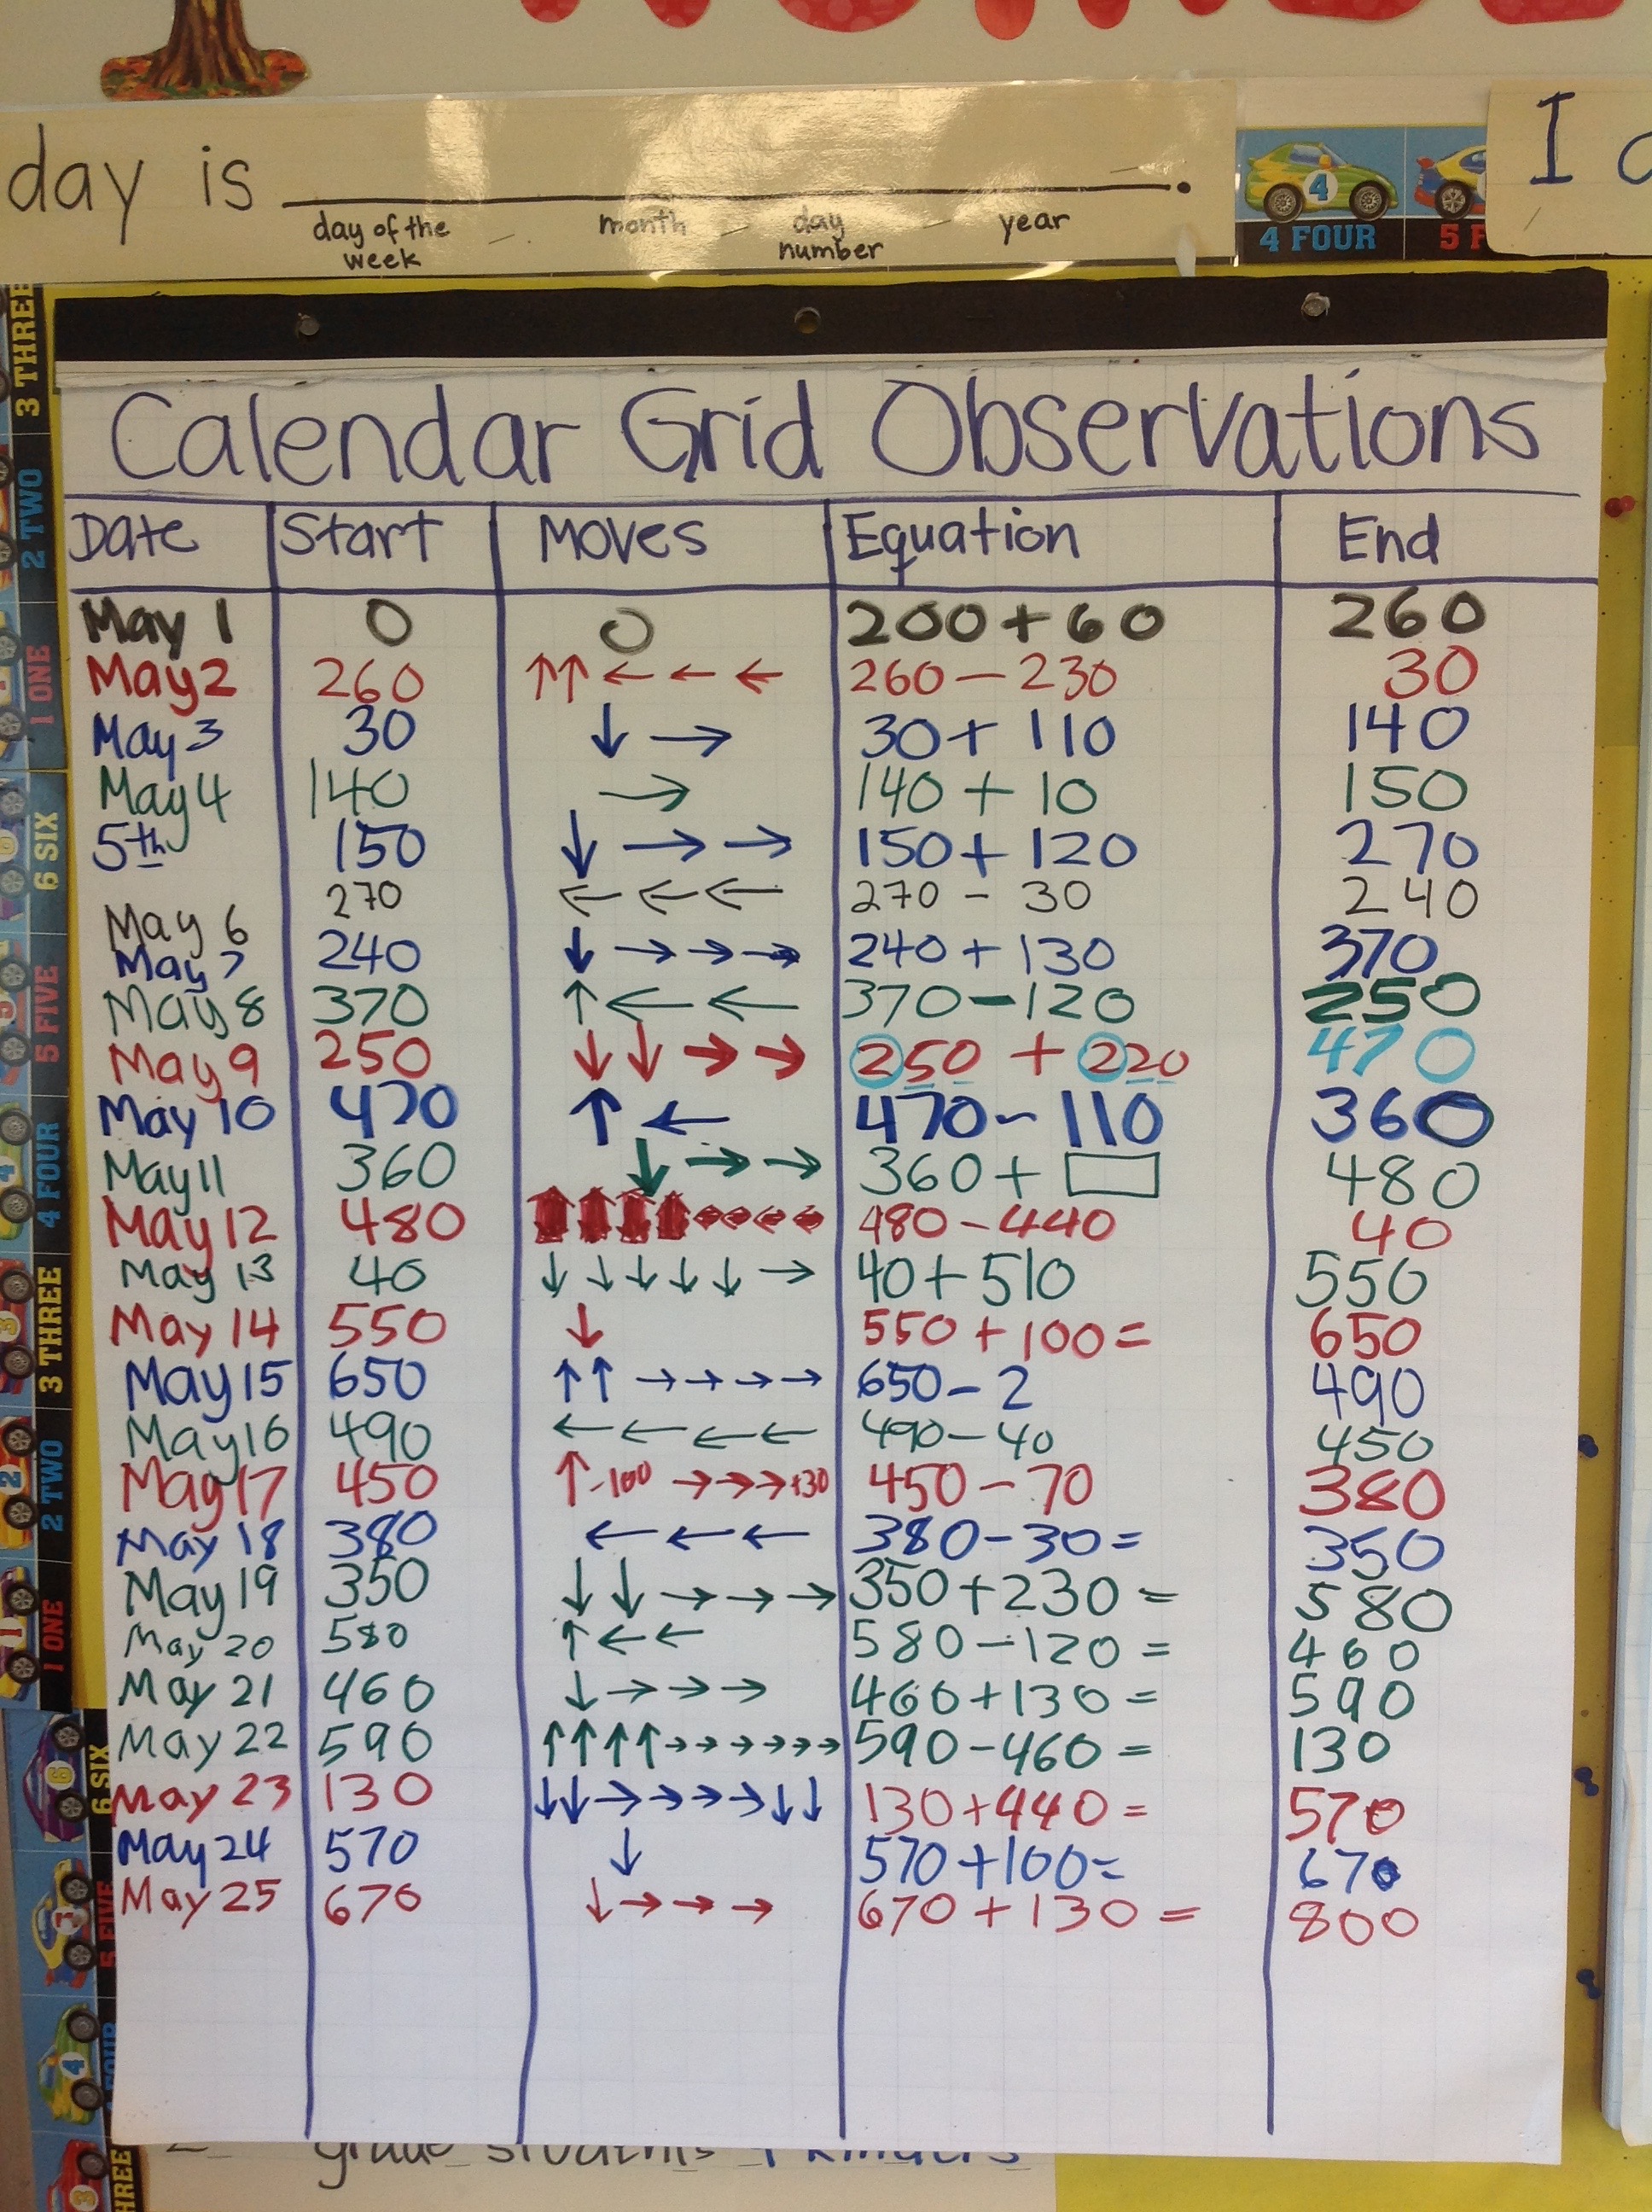 day is
day of the week month day number year
4 FOUR
I
Calendar Grid Observations
Date Start Moves Equation End
May 1 0 0 200 + 60 260
May 2 260 ↑↑←←← 260 − 230 30
May 3 30 ↓→ 30 + 110 140
May 4 140 → 140 + 10 150
5th 150 ↓→→ 150 + 120 270
May 6 270 ←←← 270 - 30 240
May 7 240 ↓→→→ 240 + 130 370
May 8 370 ↑←← 370 − 120 250
May 9 250 ↓↓→→ 250 + 220 470
May 10 470 ↑← 470 - 110 360
May 11 360 ↓→→ 360 + □ 480
May 12 480 ↑↑↑↑←←←← 480 - 440 40
May 13 40 ↓↓↓↓↓→ 40 + 510 550
May 14 550 ↓ 550 + 100 = 650
May 15 650 ↑↑→→→→ 650 - 2 490
May 16 490 ←←←← 490 - 40 450
May 17 450 ↑-100 →→→+30 450 - 70 380
May 18 380 ←←← 380 - 30 = 350
May 19 350 ↓↓→→→ 350 + 230 = 580
May 20 580 ↑←← 580 - 120 = 460
May 21 460 ↓→→→ 460 + 130 = 590
May 22 590 ↑↑↑↑→→→→→→ 590 - 460 = 130
May 23 130 ↓↓→→→→↓↓ 130 + 440 = 570
May 24 570 ↓ 570 + 100 = 670
May 25 670 ↓→→→ 670 + 130 = 800
grade students
3 THREE
2 TWO
1 ONE
6 SIX
5 FIVE
4 FOUR
3 THREE
2 TWO
1 ONE
6 SIX
5 FIVE
4 FOUR
THREE